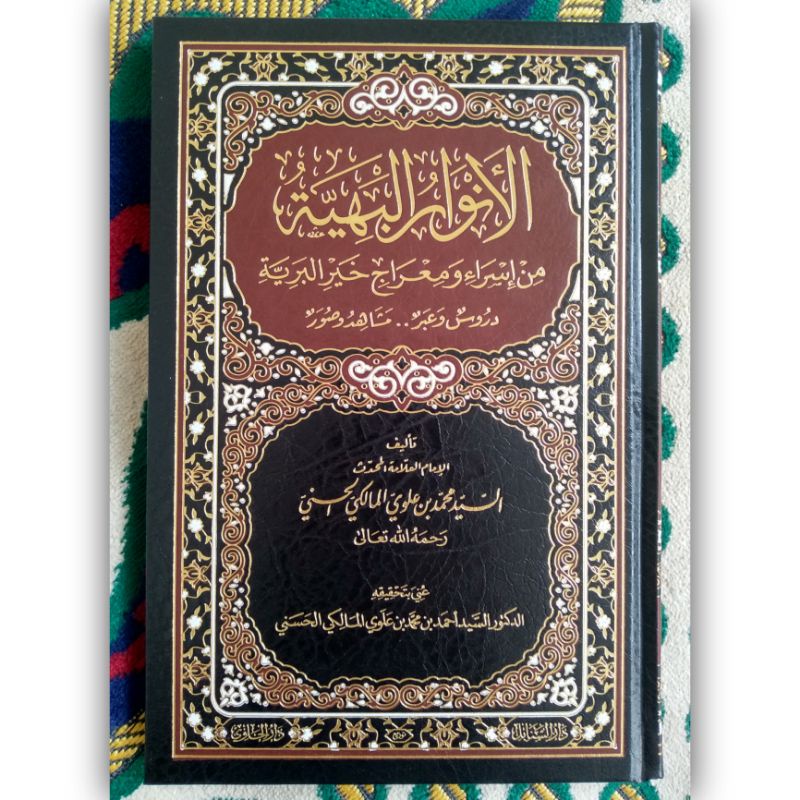 الأَنْوَارُ البَهِيَّةُ
مِنْ إِسْرَاءِ وَمِعْرَاجِ خَيْرِ البَرِيَّةِ
دُرُوسٌ وَعِبَرٌ .. مَشَاهِدُ وَصُوَرٌ
تأليف
الإمام العلامة المحدّث
السيّد محمّد بن علوي المالكي الحسني
رَحِمَهُ اللهُ تعَالىٰ
عُنِيَ بتَحْقِيقِهِ
الدكتور السيّد أحمد بن محمّد بن علوي المالكي الحسَني
دَارُ السَّنَابِل
دَارُ الحَاوِي